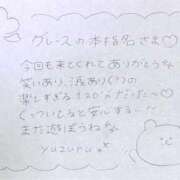 グレースの本指名さま♡
今回も来てくれてありがとうな
笑いあり、涙あり(?)の
楽しすぎる120分だった〜♡
くっついてると安心する…!
また遊ぼうねなっ
yuzuru